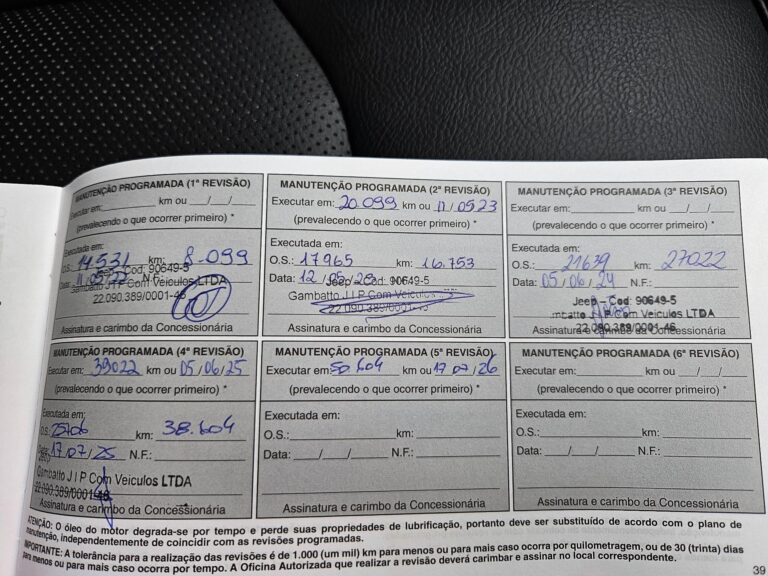 MANUTENÇÃO PROGRAMADA (1ª REVISÃO)
Executar em: km ou __/__/__
(prevalecendo o que ocorrer primeiro) *
Executada em:
O.S.: 14531 km: 8.099
Data: 11/05/22 N.F.:
Jeep - Cod: 90649-5
Gambatto J I P Com Veiculos LTDA
22.090.389/0001-46
Assinatura e carimbo da Concessionária
MANUTENÇÃO PROGRAMADA (2ª REVISÃO)
Executar em: 20.099 km ou 11/05/23
(prevalecendo o que ocorrer primeiro) *
Executada em:
O.S.: 17965 km: 16.753
Data: 12/05/23
Jeep - Cod: 90649-5
Gambatto J I P Com Veiculos
22.090.389/0001-46
Assinatura e carimbo da Concessionária
MANUTENÇÃO PROGRAMADA (3ª REVISÃO)
Executar em: km ou __/__/__
(prevalecendo o que ocorrer primeiro) *
Executada em:
O.S.: 21639 km: 27022
Data: 05/06/24 N.F.:
Jeep - Cod: 90649-5
mbatto J I P Com Veiculos LTDA
22.090.389/0001-46
Assinatura e carimbo da Concessionária
MANUTENÇÃO PROGRAMADA (4ª REVISÃO)
Executar em: 39022 km ou 05/06/25
(prevalecendo o que ocorrer primeiro) *
Executada em:
O.S.: 25706 km: 38.604
Data: 17/07/25 N.F.:
Gambatto J I P Com Veiculos LTDA
22.090.389/0001-46
Assinatura e carimbo da Concessionária
MANUTENÇÃO PROGRAMADA (5ª REVISÃO)
Executar em: 50.604 km ou 17/07/26
(prevalecendo o que ocorrer primeiro) *
Executada em:
O.S.: km:
Data: __/__/__ N.F.:
Assinatura e carimbo da Concessionária
MANUTENÇÃO PROGRAMADA (6ª REVISÃO)
Executar em: km ou __/__/__
(prevalecendo o que ocorrer primeiro) *
Executada em:
O.S.: km:
Data: __/__/__ N.F.:
Assinatura e carimbo da Concessionária
ATENÇÃO: O óleo do motor degrada-se por tempo e perde suas propriedades de lubrificação, portanto deve ser substituído de acordo com o plano de
manutenção, independentemente de coincidir com as revisões programadas.
IMPORTANTE: A tolerância para a realização das revisões é de 1.000 (um mil) km para menos ou para mais caso ocorra por quilometragem, ou de 30 (trinta) dias
para menos ou para mais caso ocorra por tempo. A Oficina Autorizada que realizar a revisão deverá carimbar e assinar no local correspondente.
39